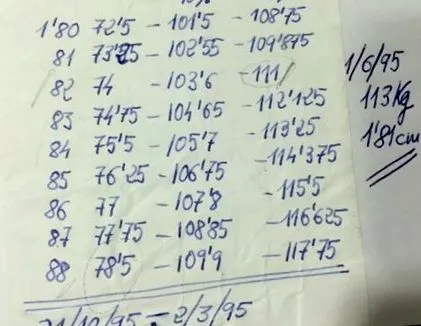 1'80 72'5 - 101'5 - 108'75
81 73'25 - 102'55 - 109'875
82 74 - 103'6 - 111
83 74'75 - 104'65 - 112'125
84 75'5 - 105'7 - 113'25
85 76'25 - 106'75 - 114'375
86 77 - 107'8 - 115'5
87 77'75 - 108'85 - 116'625
88 78'5 - 109'9 - 117'75
1/6/95
113 Kg
1'81 cm
/95 - 2/3/95